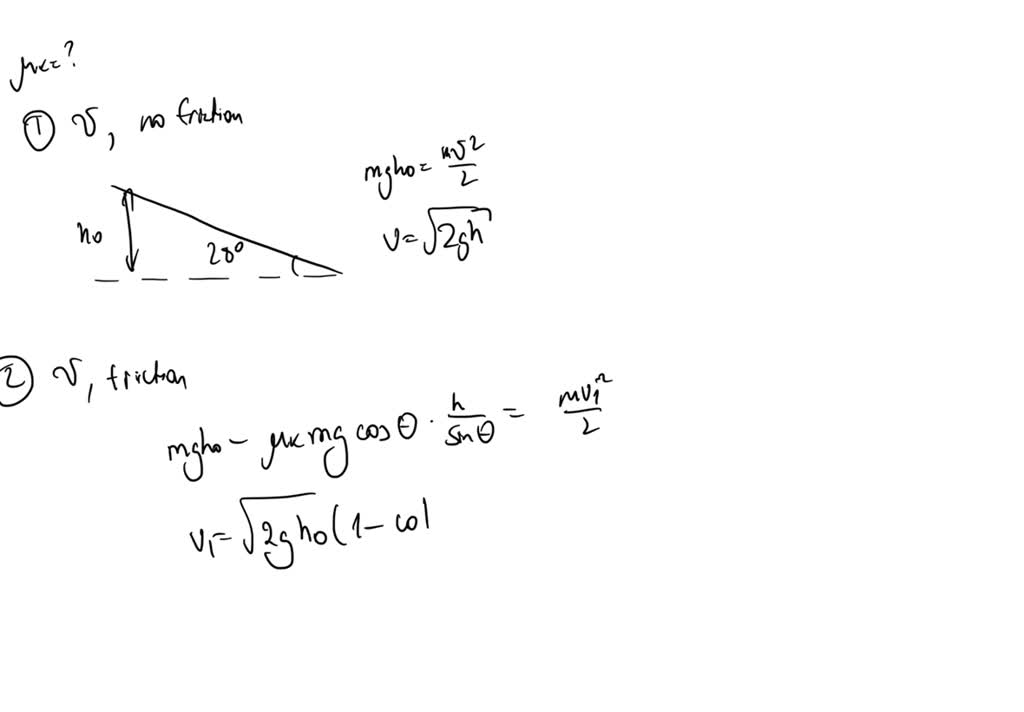 μK=?
① v, no friction
mgh₀ = mv²/2
h₀
28°
v = √2gh
② v, friction
mgh₀ − μK mg cos θ · h/sin θ = mv₁²/2
v₁ = √2gh₀(1 − cot